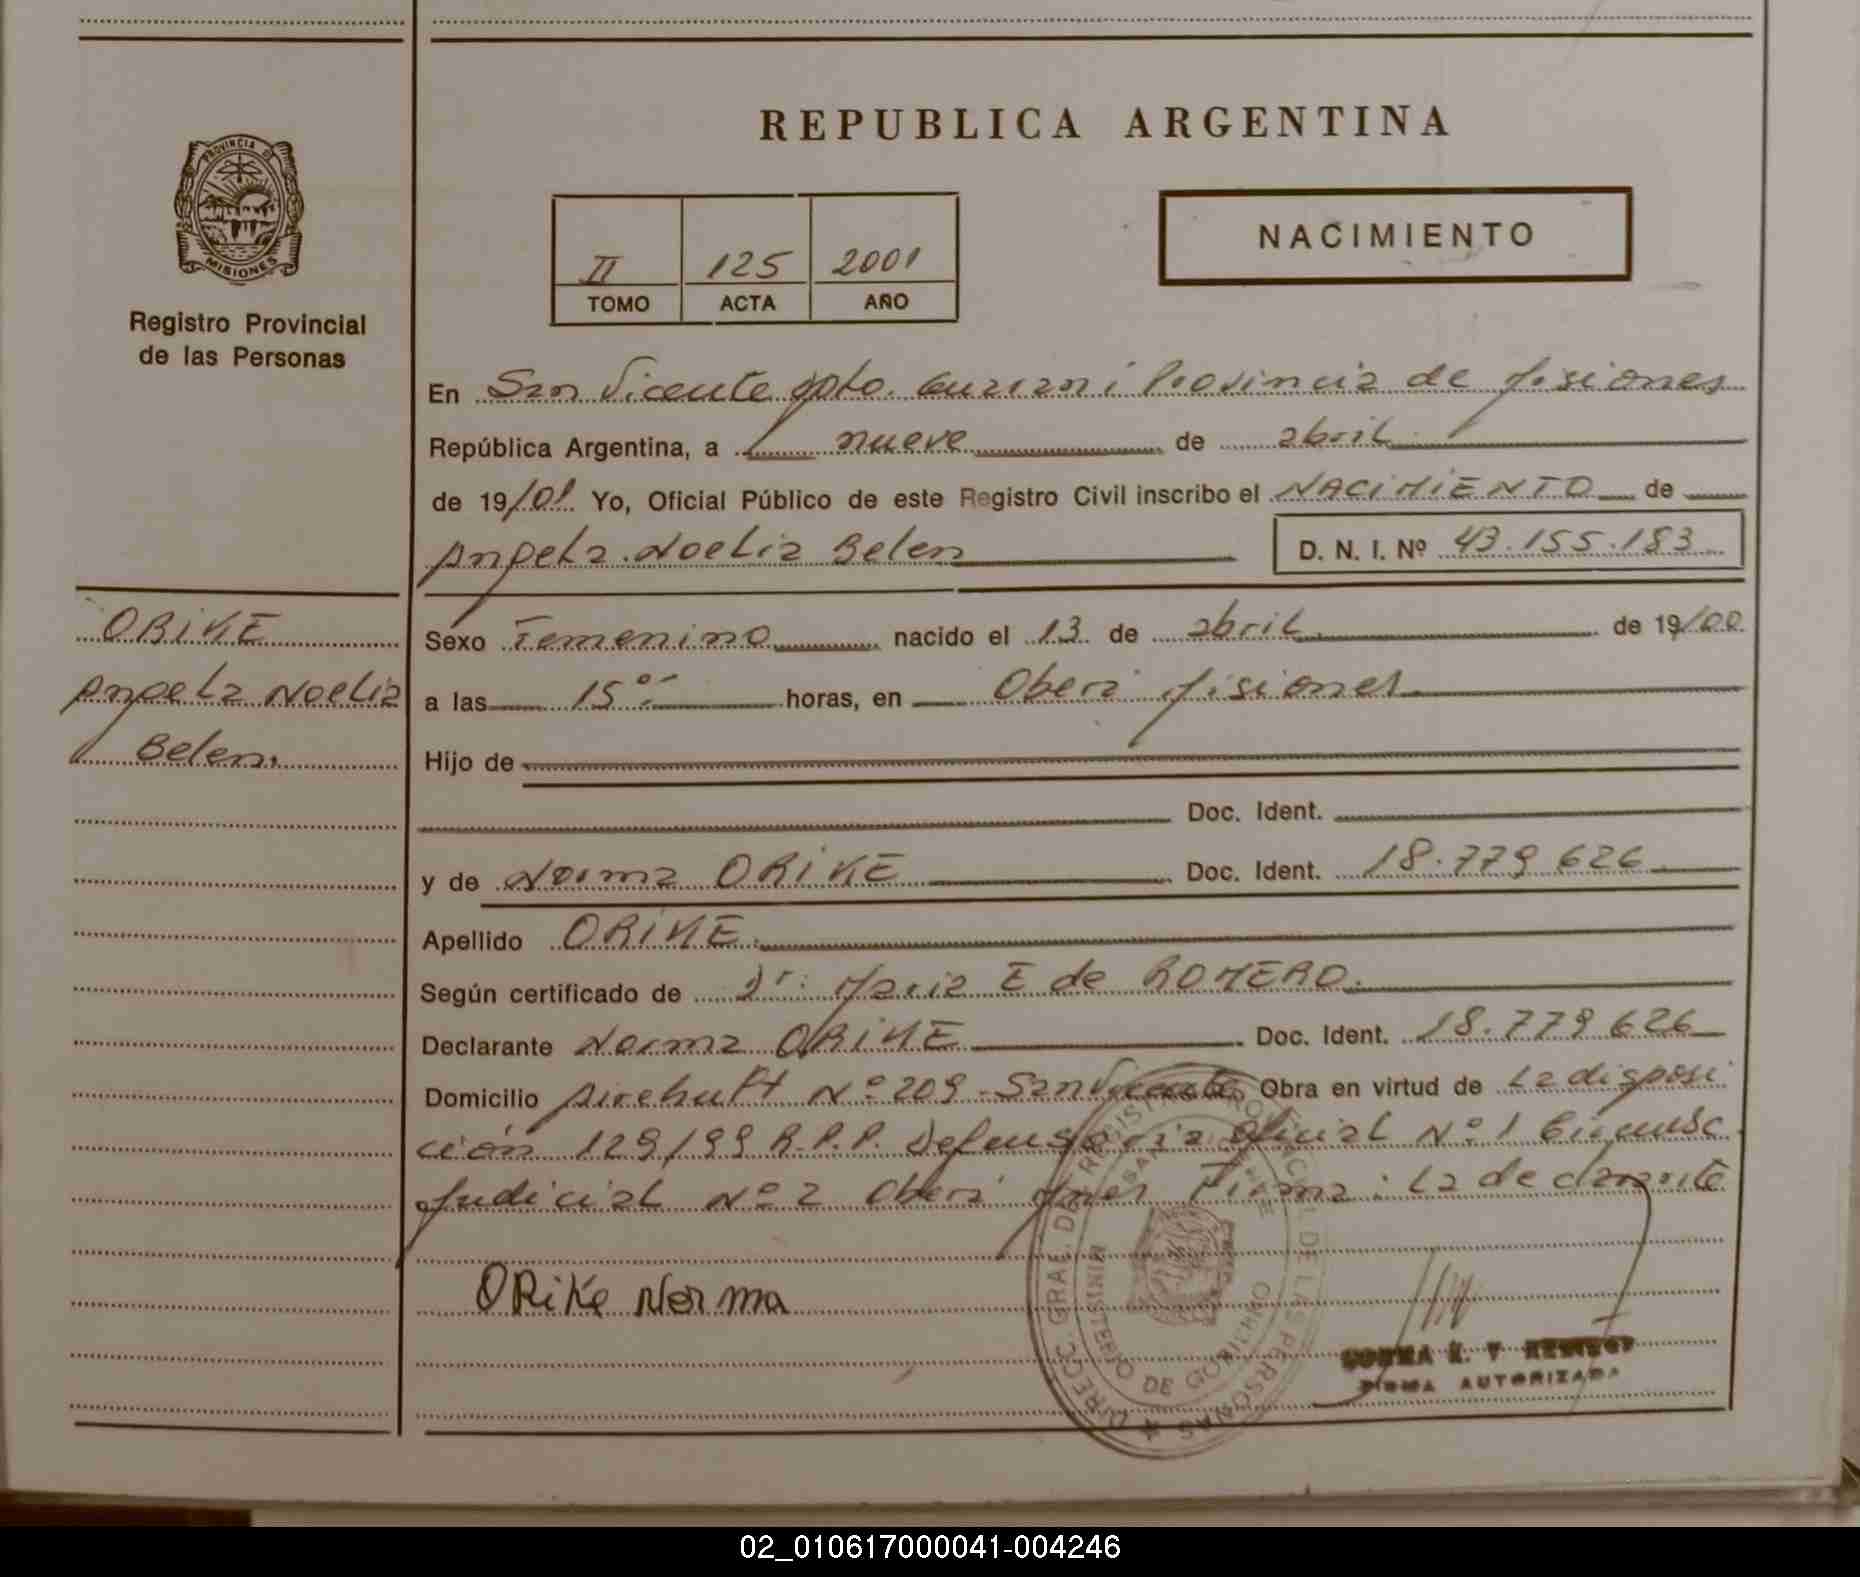 REPUBLICA ARGENTINA
PROVINCIA DE
MISIONES
Registro Provincial
de las Personas
II 125 2001
TOMO ACTA AÑO
NACIMIENTO
En San Vicente Dpto. Guarani Provincia de Misiones
República Argentina, a nueve de abril
de 19/01 Yo, Oficial Público de este Registro Civil inscribo el NACIMIENTO de
Angela Noelia Belen D. N. I. Nº 43.155.183
ORIKE
Angela Noelia
Belen.
Sexo Femenino nacido el 13 de abril de 19/00
a las 15 horas, en Obera Misiones
Hijo de
Doc. Ident.
y de Norma ORIKE Doc. Ident. 18.779 626
Apellido ORIKE
Según certificado de Dr: Maria E de ROMERO.
Declarante Norma ORIKE Doc. Ident. 18.779 626
Domicilio Nº 209 - San Vicente Obra en virtud de La disposi
ción 129/99 R.P.P. Defensoria Oficial Nº 1 Circunsc.
Judicial Nº 2 Obera Mnes Firma: La declarante
ORiKe Norma
DIRECC. GRAL. DEL REGISTRO PROVINCIAL DE LAS PERSONAS
MINISTERIO DE GOBIERNO
SAN VICENTE
FIRMA AUTORIZADA
02_010617000041-004246